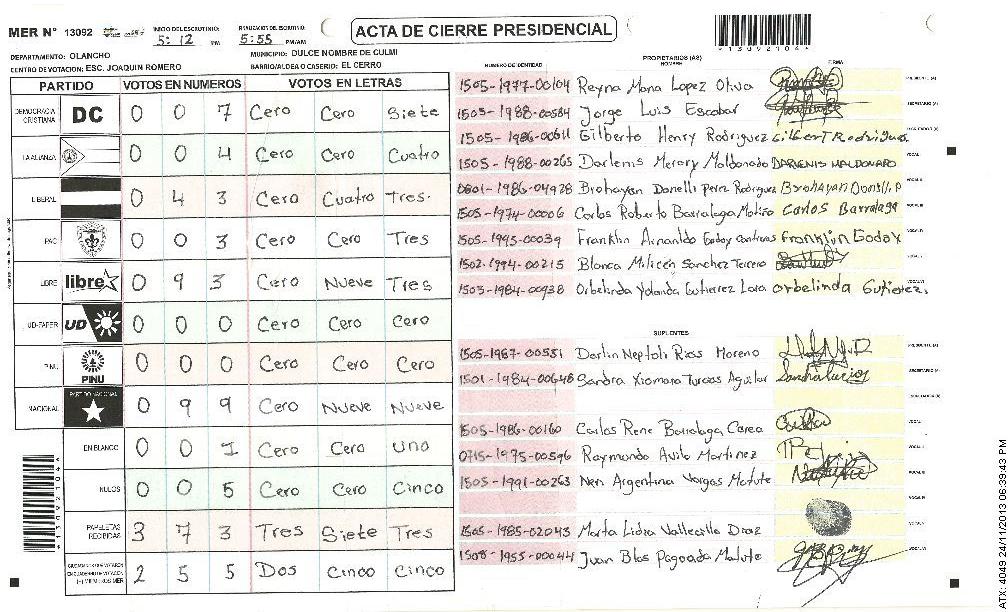 MER N° 13092
INICIO DEL ESCRUTINIO:
5:12 PM
FINALIZACION DEL ESCRUTINIO:
5:55 PM/AM
ACTA DE CIERRE PRESIDENCIAL
*1309204*
DEPARTAMENTO: OLANCHO
MUNICIPIO: DULCE NOMBRE DE CULMI
CENTRO DE VOTACION: ESC. JOAQUIN ROMERO
BARRIO/ALDEA O CASERIO: EL CERRO
PARTIDO VOTOS EN NUMEROS VOTOS EN LETRAS
DEMOCRACIA CRISTIANA DC 0 0 7 Cero Cero Siete
LA ALIANZA 0 0 4 Cero Cero Cuatro
LIBERAL 0 4 3 Cero Cuatro Tres.
PAC 0 0 3 Cero Cero Tres
LIBRE libre 0 9 3 Cero Nueve Tres
UD-FAPER UD 0 0 0 Cero Cero Cero
PINU PINU 0 0 0 Cero Cero Cero
NACIONAL PARTIDO NACIONAL 0 9 9 Cero Nueve Nueve
EN BLANCO 0 0 1 Cero Cero uno
NULOS 0 0 5 Cero Cero Cinco
PAPELETAS RECIBIDAS 3 7 3 Tres Siete Tres
CIUDADANOS QUE VOTARON EN CUADERNO DE VOTACION (+) MIEMBROS MER 2 5 5 Dos Cinco Cinco
PROPIETARIOS (AS)
NUMERO DE IDENTIDAD NOMBRE FIRMA
1505-1977-00104 Reyna Maria Lopez Oliva PRESIDENTE (A)
1505-1988-00584 Jorge Luis Escobar SECRETARIO (A)
1505-1986-00611 Gilberto Henry Rodriguez Gilbert Rodriguez ESCRUTADOR (A)
1505-1988-00265 Darlenis Merary Maldonado DARLENIS MALDONADO VOCAL I
0801-1986-04928 Brohayan Donelli Perez Rodriguez Brohayan Donelli P VOCAL II
1505-1974-00006 Carlos Roberto Barralaga Carlos Barralaga VOCAL III
1505-1995-00039 Franklin Arnaldo Godoy Franklin Godoy
1502-1994-00215 Blanca Sanchez Tercero
1503-1984-00938 Orbelinda Yolanda Gutierrez Lara Orbelinda Gutierrez.
SUPLENTES
1505-1987-00551 Darlin Neptali Rios Moreno PRESIDENTE (A)
1501-1984-00648 Sandra Xiomara Turcios Aguilar Sandra Turcios SECRETARIO (A)
ESCRUTADOR (A)
1505-1986-00160 Carlos Rene Barralaga
0715-1975-00596 Raymundo Avila Martinez
1505-1991-00263 Neri Argentina Vargas Matute
1505-1985-02043 Marta Lidia Vallecillo Diaz
1508-1955-00044 Juan Blas Pagoada Matute
*1309204*
ATX: 4049 24/11/2013 06:39:43 PM